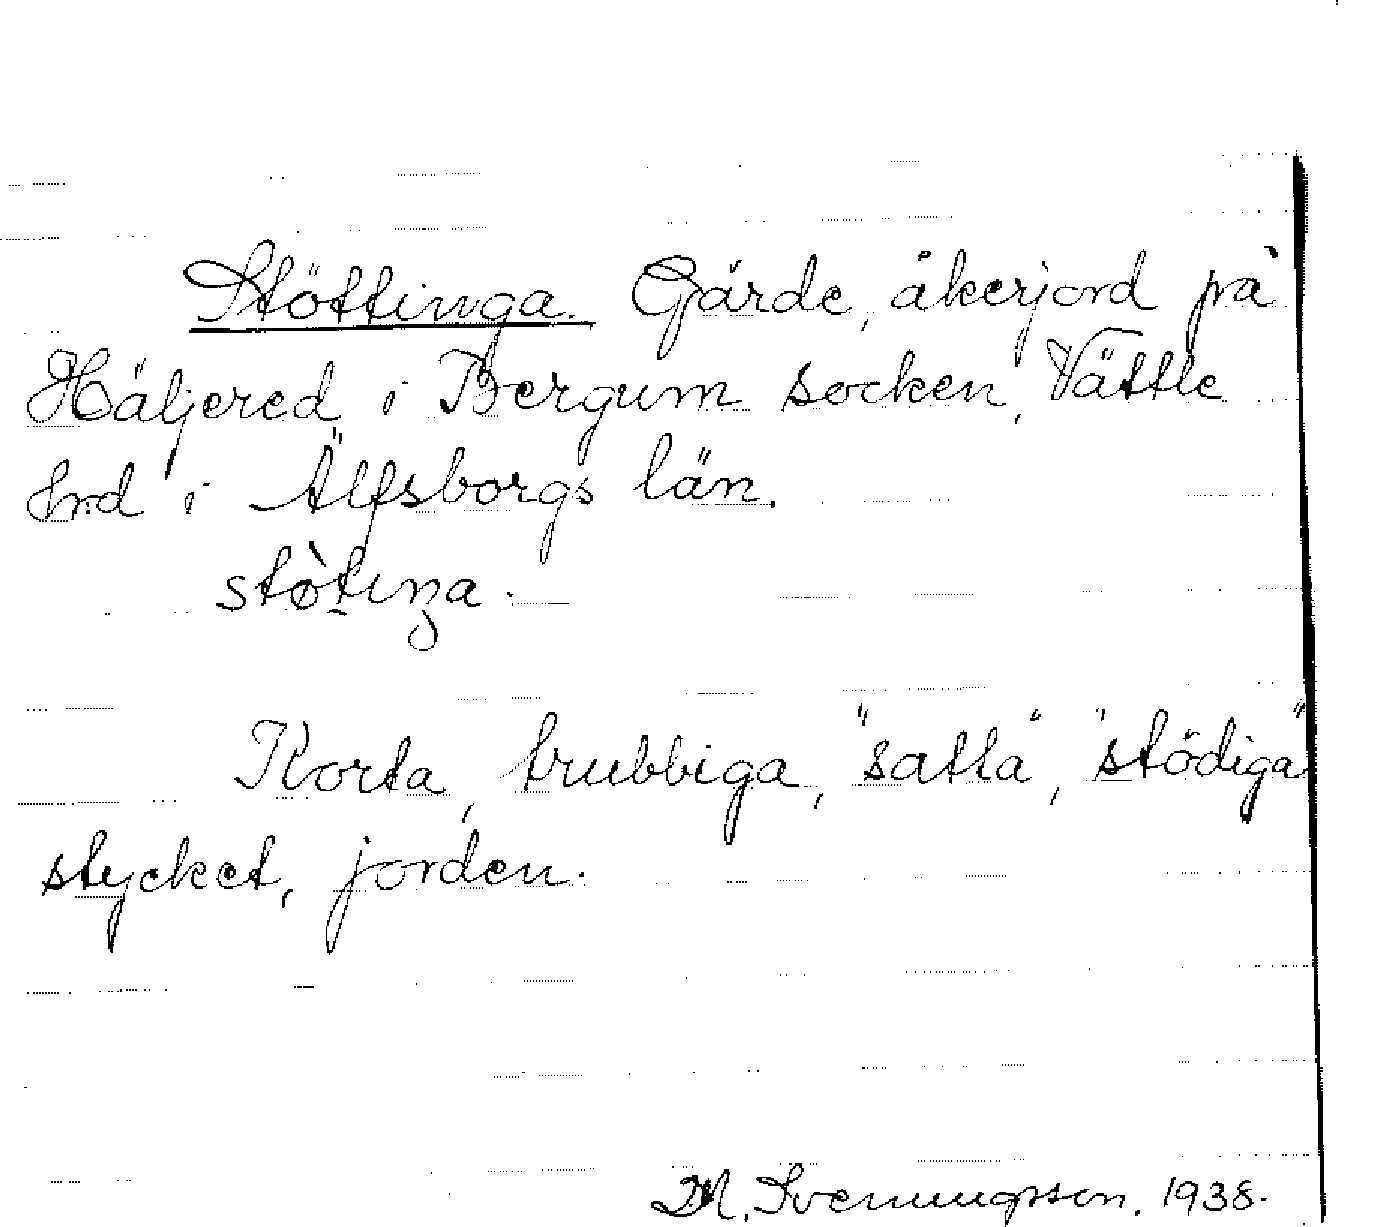 Stöttinga. Gärde, åkerjord på
Häljered i Bergum socken, Vättle
hrd i Älfsborgs län.
Korta, trubbiga, "satta", "stödiga"
stycket, jorden.
Svenungsson. 1938.